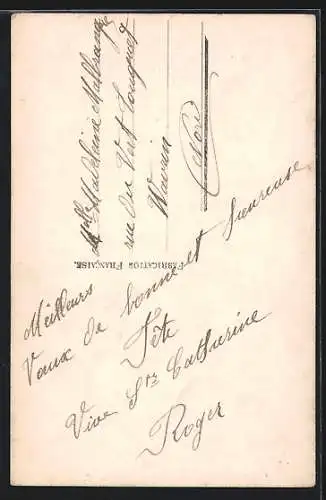 Mlle Madeleine Mallrang
rue du Vert Touquet
Wavrin
Nord
FABRICATION FRANÇAISE.
Meilleurs
Vœux de bonne et heureuse
Fête
Vive Ste Catherine
Roger